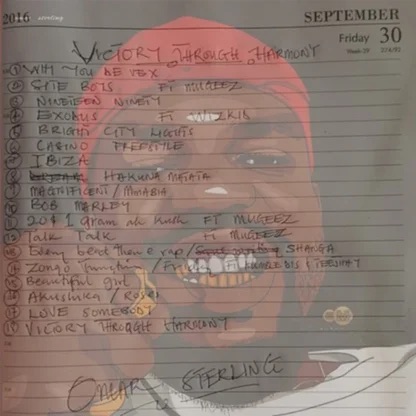 2016
SEPTEMBER
Friday 30
Week 39 274/92
VICTORY THROUGH HARMONY
1 WHY YOU DE VEX
2 SITE BOYS FT MUGEEZ
3 NINETEEN NINETY
4 EXODUS FT WIZKID
5 BRIGHT CITY LIGHTS
6 CASINO FREESTYLE
7 IBIZA
8 HAKUNA MATATA
9 MAGNIFICENT /
10 BOB MARLEY
11 20 $ 1 gram ah kush FT MUGEEZ
12 Talk Talk FT MUGEEZ
13 Every beat there rap / SHANGA
14 Zongo /
15 Beautiful girl
16 Akushika / ROSE
17 LOVE SOMEBODY
18 VICTORY THROUGH HARMONY
OMAR STERLING